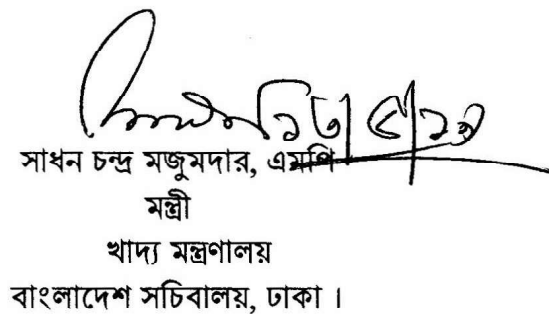 সাধন চন্দ্র মজুমদার, এমপি
মন্ত্রী
খাদ্য মন্ত্রণালয়
বাংলাদেশ সচিবালয়, ঢাকা ।